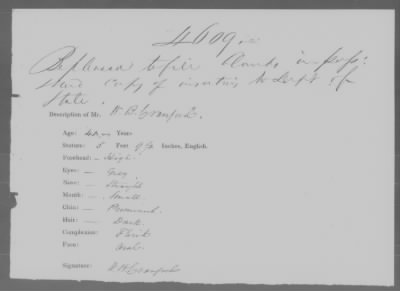 4609
Be pleased to fill blanks in pass:
send copy of insertion to Dept of
State.
Description of Mr. W. B. Crawford.
Age: Years
Stature: 5 Feet 9 1/2 Inches, English.
Forehead: — High.
Eyes: — Grey.
Nose: — Straight
Mouth: — Small
Chin: — Prominent.
Hair: — Dark.
Complexion:
Face: Oval.
Signature: W B Crawford